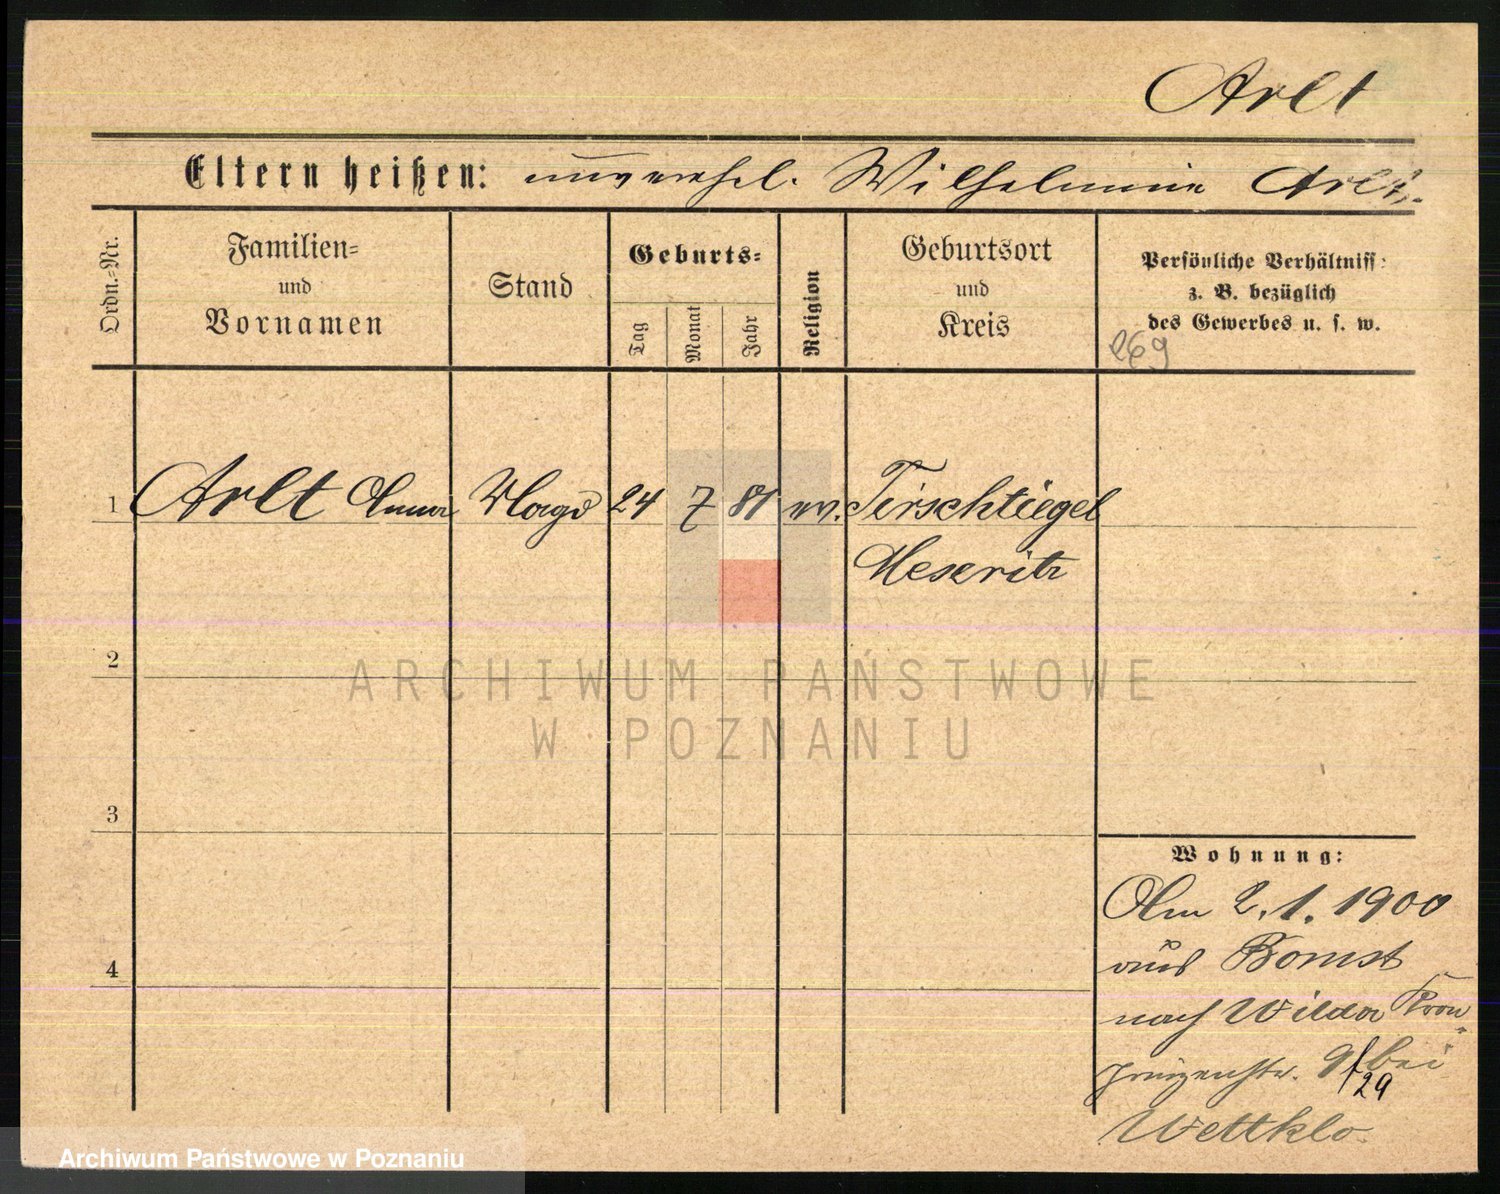 Arlt
Eltern heißen: unverehel. Wilhelmine Arlt.
Ordn.-Nr.
Familien-
und
Vornamen
Stand
Geburts-
Tag
Monat
Jahr
Religion
Geburtsort
und
Kreis
Persönliche Verhältniss
z. B. bezüglich
des Gewerbes u. s. w.
269
1 Arlt Anna Magd 24 7 81 ev. Tirschtiegel
Meseritz
2
ARCHIWUM PAŃSTWOWE
W POZNANIU
3
Wohnung:
Am 2.1.1900
aus Bomst
4
nach Wilda Kron-
prinzenstr. 91/29 bei
Wettklo
Archiwum Państwowe w Poznaniu